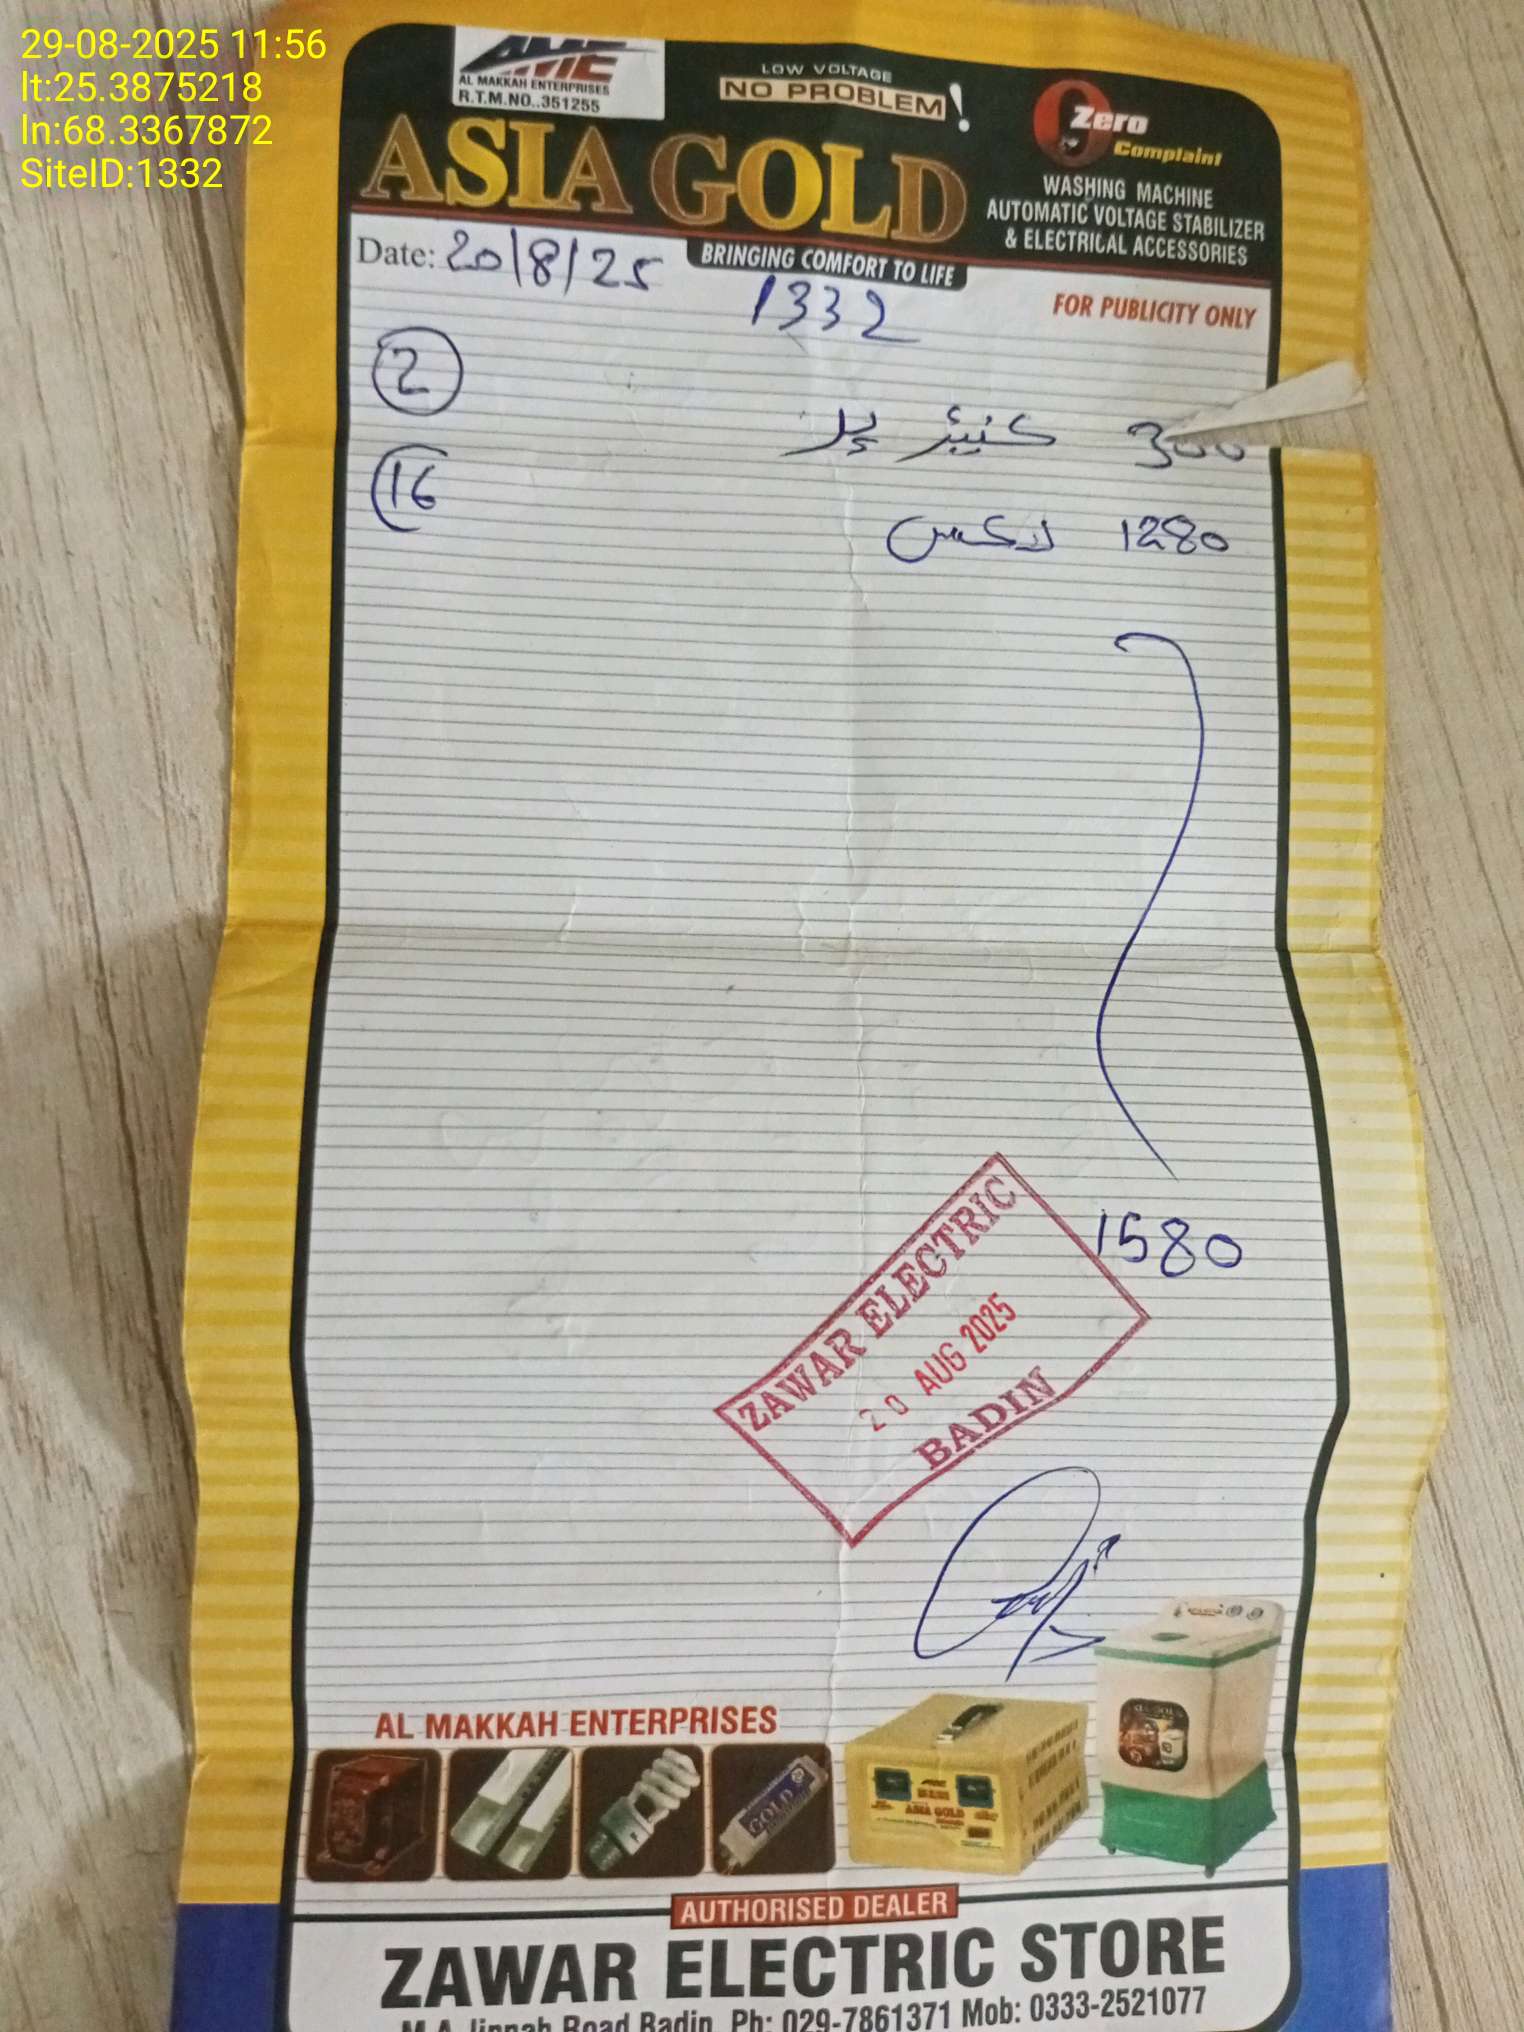 29-08-2025 11:56
lt:25.3875218
ln:68.3367872
SiteID:1332
AME
AL MAKKAH ENTERPRISES
R.T.M.NO..351255
LOW VOLTAGE
NO PROBLEM!
Zero
Complaint
ASIA GOLD
WASHING MACHINE
AUTOMATIC VOLTAGE STABILIZER
& ELECTRICAL ACCESSORIES
BRINGING COMFORT TO LIFE
Date: 20/8/25
1332
FOR PUBLICITY ONLY
2
300
16
1280 لاکس
1580
ZAWAR ELECTRIC
20 AUG 2025
BADIN
AL MAKKAH ENTERPRISES
GOLD
ASIA GOLD
AUTHORISED DEALER
ZAWAR ELECTRIC STORE
M.A Jinnah Road Badin Ph: 029-7861371 Mob: 0333-2521077